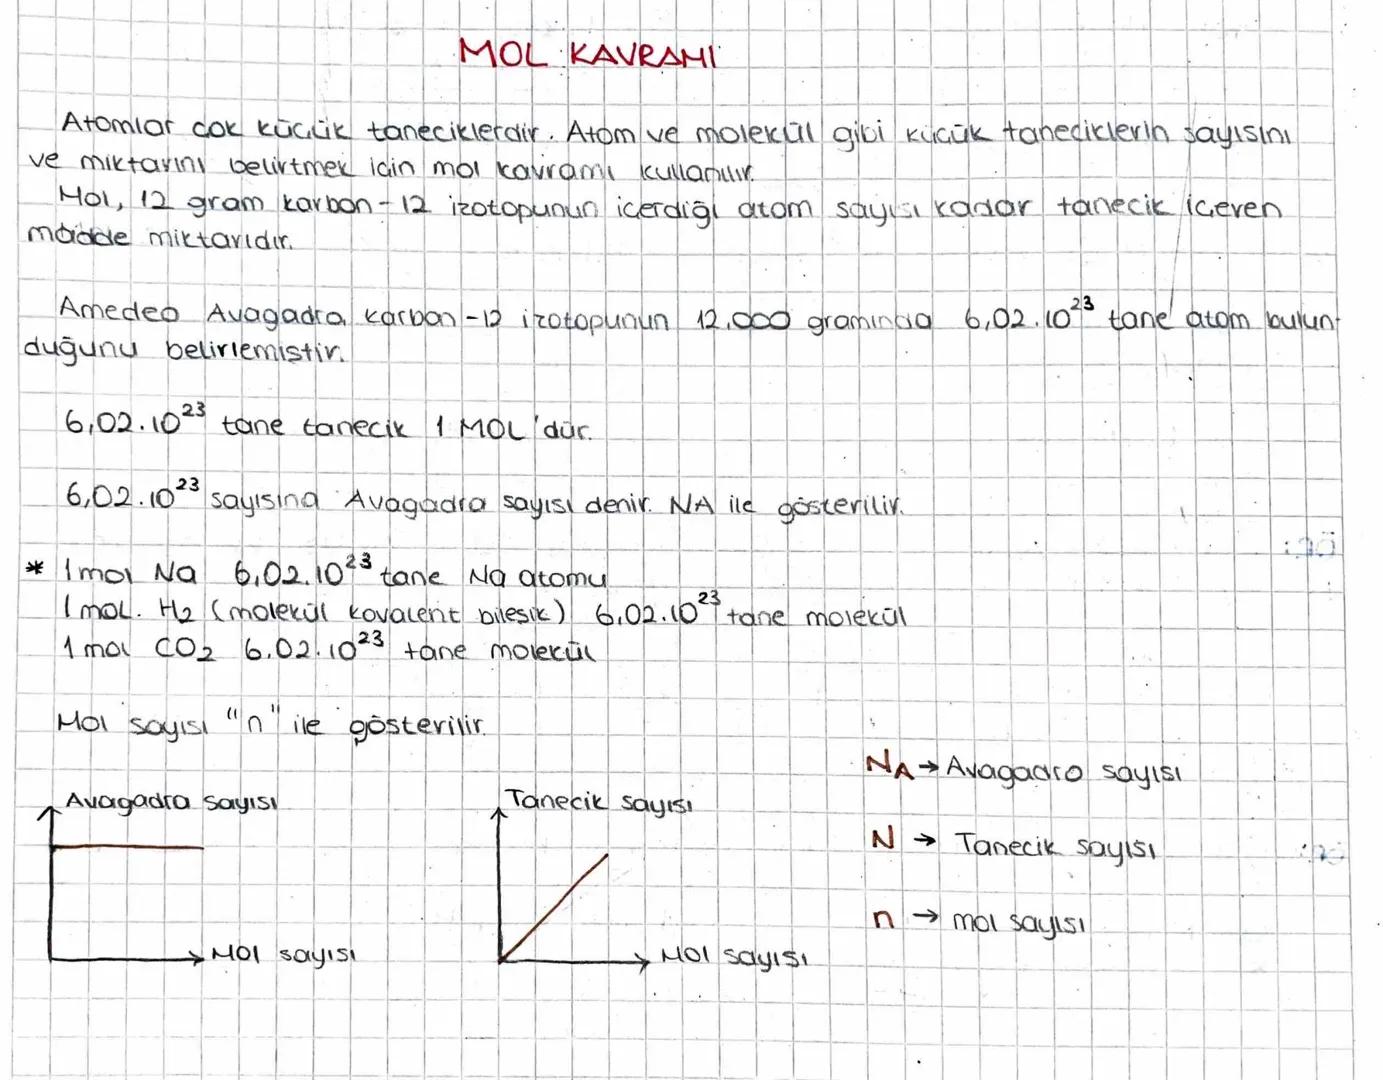 MOL KAVRAMI
Atomlar çok küçük taneciklerdir. Atom ve molekül gibi küçük taneciklerin sayısını
ve miktarını belirtmek için mol kavramı kullanılır.
Mol, 12 gram karbon-12 izotopunun içerdiği atom sayısı kadar tanecik içeren
madde miktarıdır.
Amedeo Avagadro karbon-12 izotopunun 12,000 gramında 6,02.10²³ tane atom bulun-
duğunu belirlemiştir.
6,02.10²³ tane tanecik 1 MOL'dür.
6,02.10²³ sayısına Avagadra sayısı denir. NA ile gösterilir.
* 1 mol Na 6,02.10²³ tane Na atomu
1 mol. H2 (molekül kovalent bileşik) 6,02.10²³ tane molekül
1 mol CO2 6.02.10²³ tane molekül
Mol sayısı "n" ile gösterilir.
NA → Avagadro sayısı
Avagadra sayısı
Tanecik sayısı
N → Tanecik sayısı
n → mol sayısı
Mol sayısı
Mol sayısı